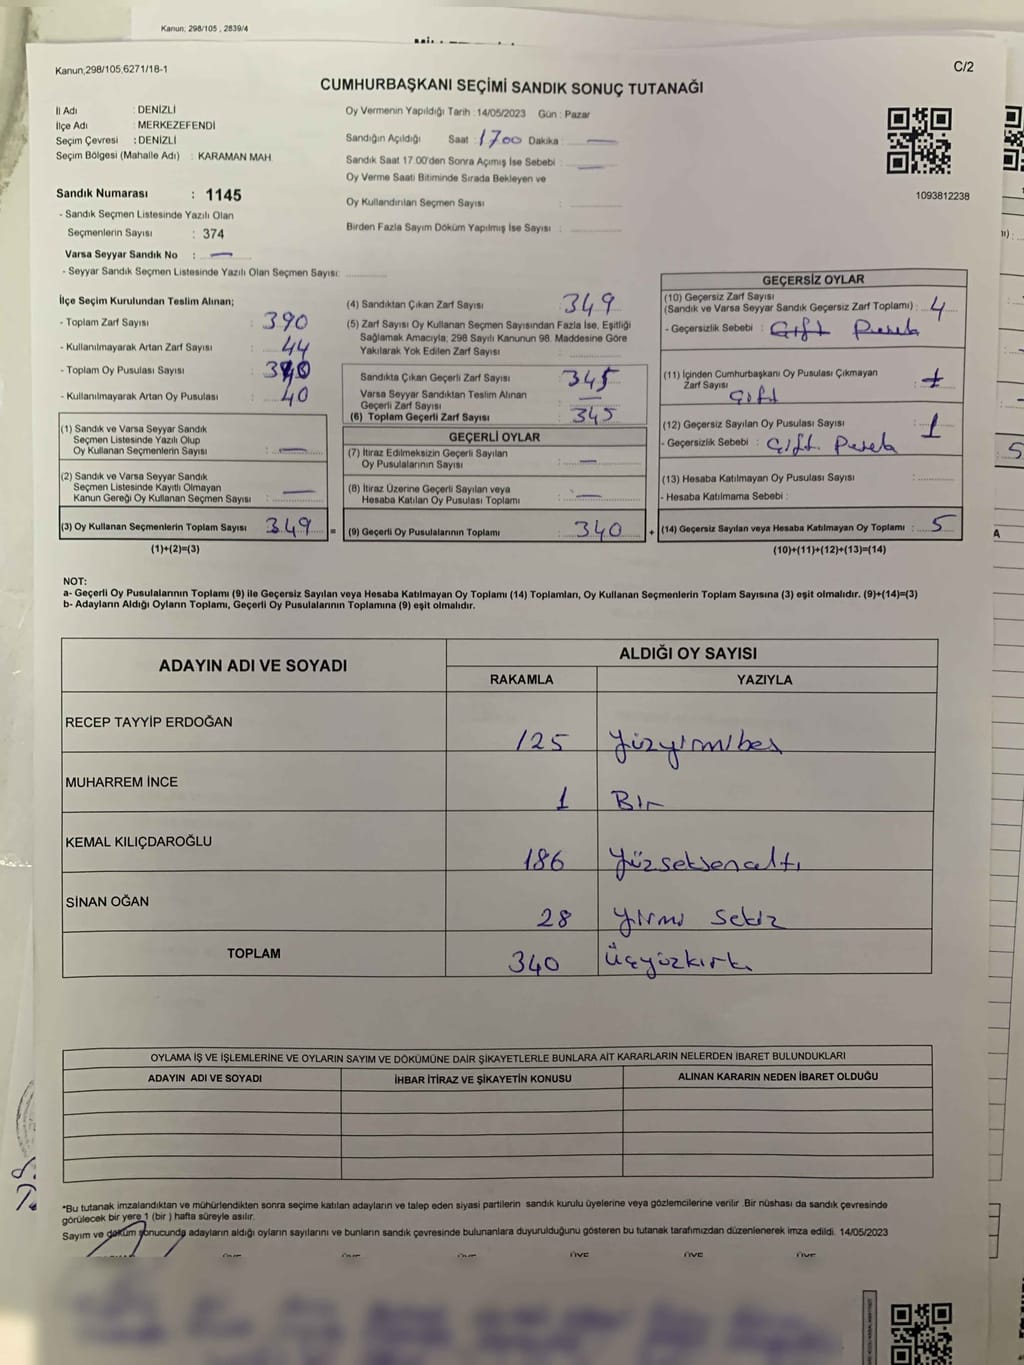 Kanun; 298/105 , 2839/4
Kanun;298/105,6271/18-1
C/2
CUMHURBAŞKANI SEÇİMİ SANDIK SONUÇ TUTANAĞI
İl Adı : DENİZLİ
İlçe Adı : MERKEZEFENDİ
Seçim Çevresi : DENİZLİ
Seçim Bölgesi (Mahalle Adı) : KARAMAN MAH
Sandık Numarası : 1145
- Sandık Seçmen Listesinde Yazılı Olan
Seçmenlerin Sayısı : 374
Varsa Seyyar Sandık No : —
- Seyyar Sandık Seçmen Listesinde Yazılı Olan Seçmen Sayısı:
Oy Vermenin Yapıldığı Tarih : 14/05/2023 Gün : Pazar
Sandığın Açıldığı Saat : 17.00 Dakika : —
Sandık Saat 17.00'den Sonra Açımış İse Sebebi : —
Oy Verme Saati Bitiminde Sırada Bekleyen ve
Oy Kullandırılan Seçmen Sayısı :
Birden Fazla Sayım Döküm Yapılmış İse Sayısı :
1093812238
İlçe Seçim Kurulundan Teslim Alınan;
- Toplam Zarf Sayısı : 390
- Kullanılmayarak Artan Zarf Sayısı : 44
- Toplam Oy Pusulası Sayısı :
- Kullanılmayarak Artan Oy Pusulası : 40
(1) Sandık ve Varsa Seyyar Sandık
Seçmen Listesinde Yazılı Olup
Oy Kullanan Seçmenlerin Sayısı : —
(2) Sandık ve Varsa Seyyar Sandık
Seçmen Listesinde Kayıtlı Olmayan
Kanun Gereği Oy Kullanan Seçmen Sayısı : —
(3) Oy Kullanan Seçmenlerin Toplam Sayısı 349 =
(1)+(2)=(3)
(4) Sandıktan Çıkan Zarf Sayısı : 349
(5) Zarf Sayısı Oy Kullanan Seçmen Sayısından Fazla İse, Eşitliği
Sağlamak Amacıyla; 298 Sayılı Kanunun 98. Maddesine Göre
Yakılarak Yok Edilen Zarf Sayısı :
Sandıkta Çıkan Geçerli Zarf Sayısı : 345
Varsa Seyyar Sandıktan Teslim Alınan
Geçerli Zarf Sayısı : —
(6) Toplam Geçerli Zarf Sayısı : 345
GEÇERLİ OYLAR
(7) İtiraz Edilmeksizin Geçerli Sayılan
Oy Pusulalarının Sayısı : —
(8) İtiraz Üzerine Geçerli Sayılan veya
Hesaba Katılan Oy Pusulası Toplamı : —
(9) Geçerli Oy Pusulalarının Toplamı : 340 +
GEÇERSİZ OYLAR
(10) Geçersiz Zarf Sayısı
(Sandık ve Varsa Seyyar Sandık Geçersiz Zarf Toplamı) : 4
- Geçersizlik Sebebi : Çift Pusula
(11) İçinden Cumhurbaşkanı Oy Pusulası Çıkmayan
Zarf Sayısı :
Çift
(12) Geçersiz Sayılan Oy Pusulası Sayısı : 1
- Geçersizlik Sebebi : Çift Pusula
(13) Hesaba Katılmayan Oy Pusulası Sayısı :
- Hesaba Katılmama Sebebi :
(14) Geçersiz Sayılan veya Hesaba Katılmayan Oy Toplamı : 5
(10)+(11)+(12)+(13)=(14)
NOT:
a- Geçerli Oy Pusulalarının Toplamı (9) ile Geçersiz Sayılan veya Hesaba Katılmayan Oy Toplamı (14) Toplamları, Oy Kullanan Seçmenlerin Toplam Sayısına (3) eşit olmalıdır. (9)+(14)=(3)
b- Adayların Aldığı Oyların Toplamı, Geçerli Oy Pusulalarının Toplamına (9) eşit olmalıdır.
ADAYIN ADI VE SOYADI
ALDIĞI OY SAYISI
RAKAMLA YAZIYLA
RECEP TAYYİP ERDOĞAN 125 Yüzyirmibeş
MUHARREM İNCE 1 Bir
KEMAL KILIÇDAROĞLU 186 Yüzseksenaltı
SİNAN OĞAN 28 Yirmi sekiz
TOPLAM 340 Üçyüzkırk
OYLAMA İŞ VE İŞLEMLERİNE VE OYLARIN SAYIM VE DÖKÜMÜNE DAİR ŞİKAYETLERLE BUNLARA AİT KARARLARIN NELERDEN İBARET BULUNDUKLARI
ADAYIN ADI VE SOYADI İHBAR İTİRAZ VE ŞİKAYETİN KONUSU ALINAN KARARIN NEDEN İBARET OLDUĞU
*Bu tutanak imzalandıktan ve mühürlendikten sonra seçime katılan adayların ve talep eden siyasi partilerin sandık kurulu üyelerine veya gözlemcilerine verilir .Bir nüshası da sandık çevresinde
görülecek bir yere 1 (bir ) hafta süreyle asılır.
Sayım ve döküm sonucunda adayların aldığı oyların sayılarını ve bunların sandık çevresinde bulunanlara duyurulduğunu gösteren bu tutanak tarafımızdan düzenlenerek imza edildi. 14/05/2023